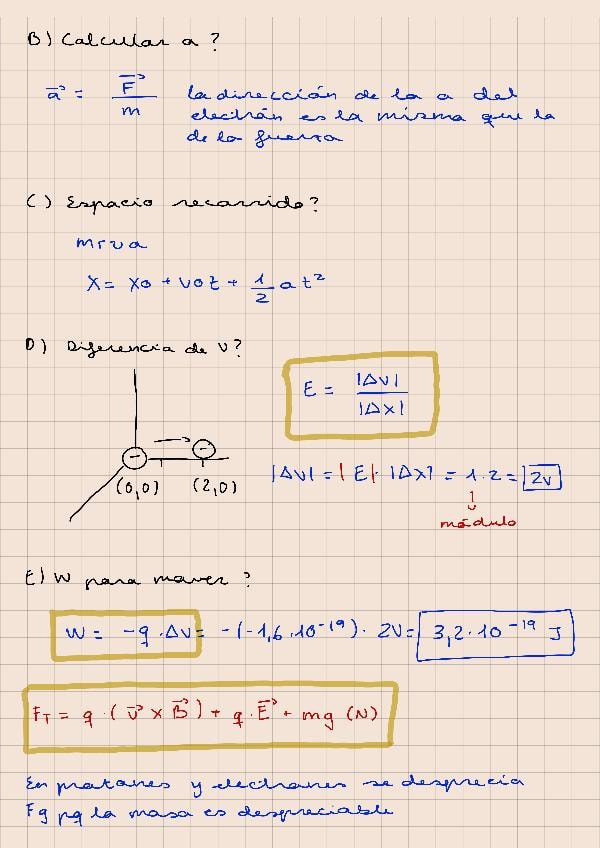 B) Calcular a?
a⃗ = F⃗ / m la dirección de la a del
electrón es la misma que la
de la fuerza
C) Espacio recorrido?
mrva
X = Xo + Vot + 1/2 at²
D) Diferencia de V?
E = |ΔV| / |ΔX|
(0,0) (2,0)
|ΔV| = |E| · |ΔX| = 1·2 = 2V
módulo
E) W para mover?
W = -q·ΔV = -(-1,6·10⁻¹⁹)· 2V = 3,2·10⁻¹⁹ J
F_T = q·(v⃗ × B⃗) + q·E⃗ + mg (N)
En protones y electrones se desprecia
Fg pq la masa es despreciable